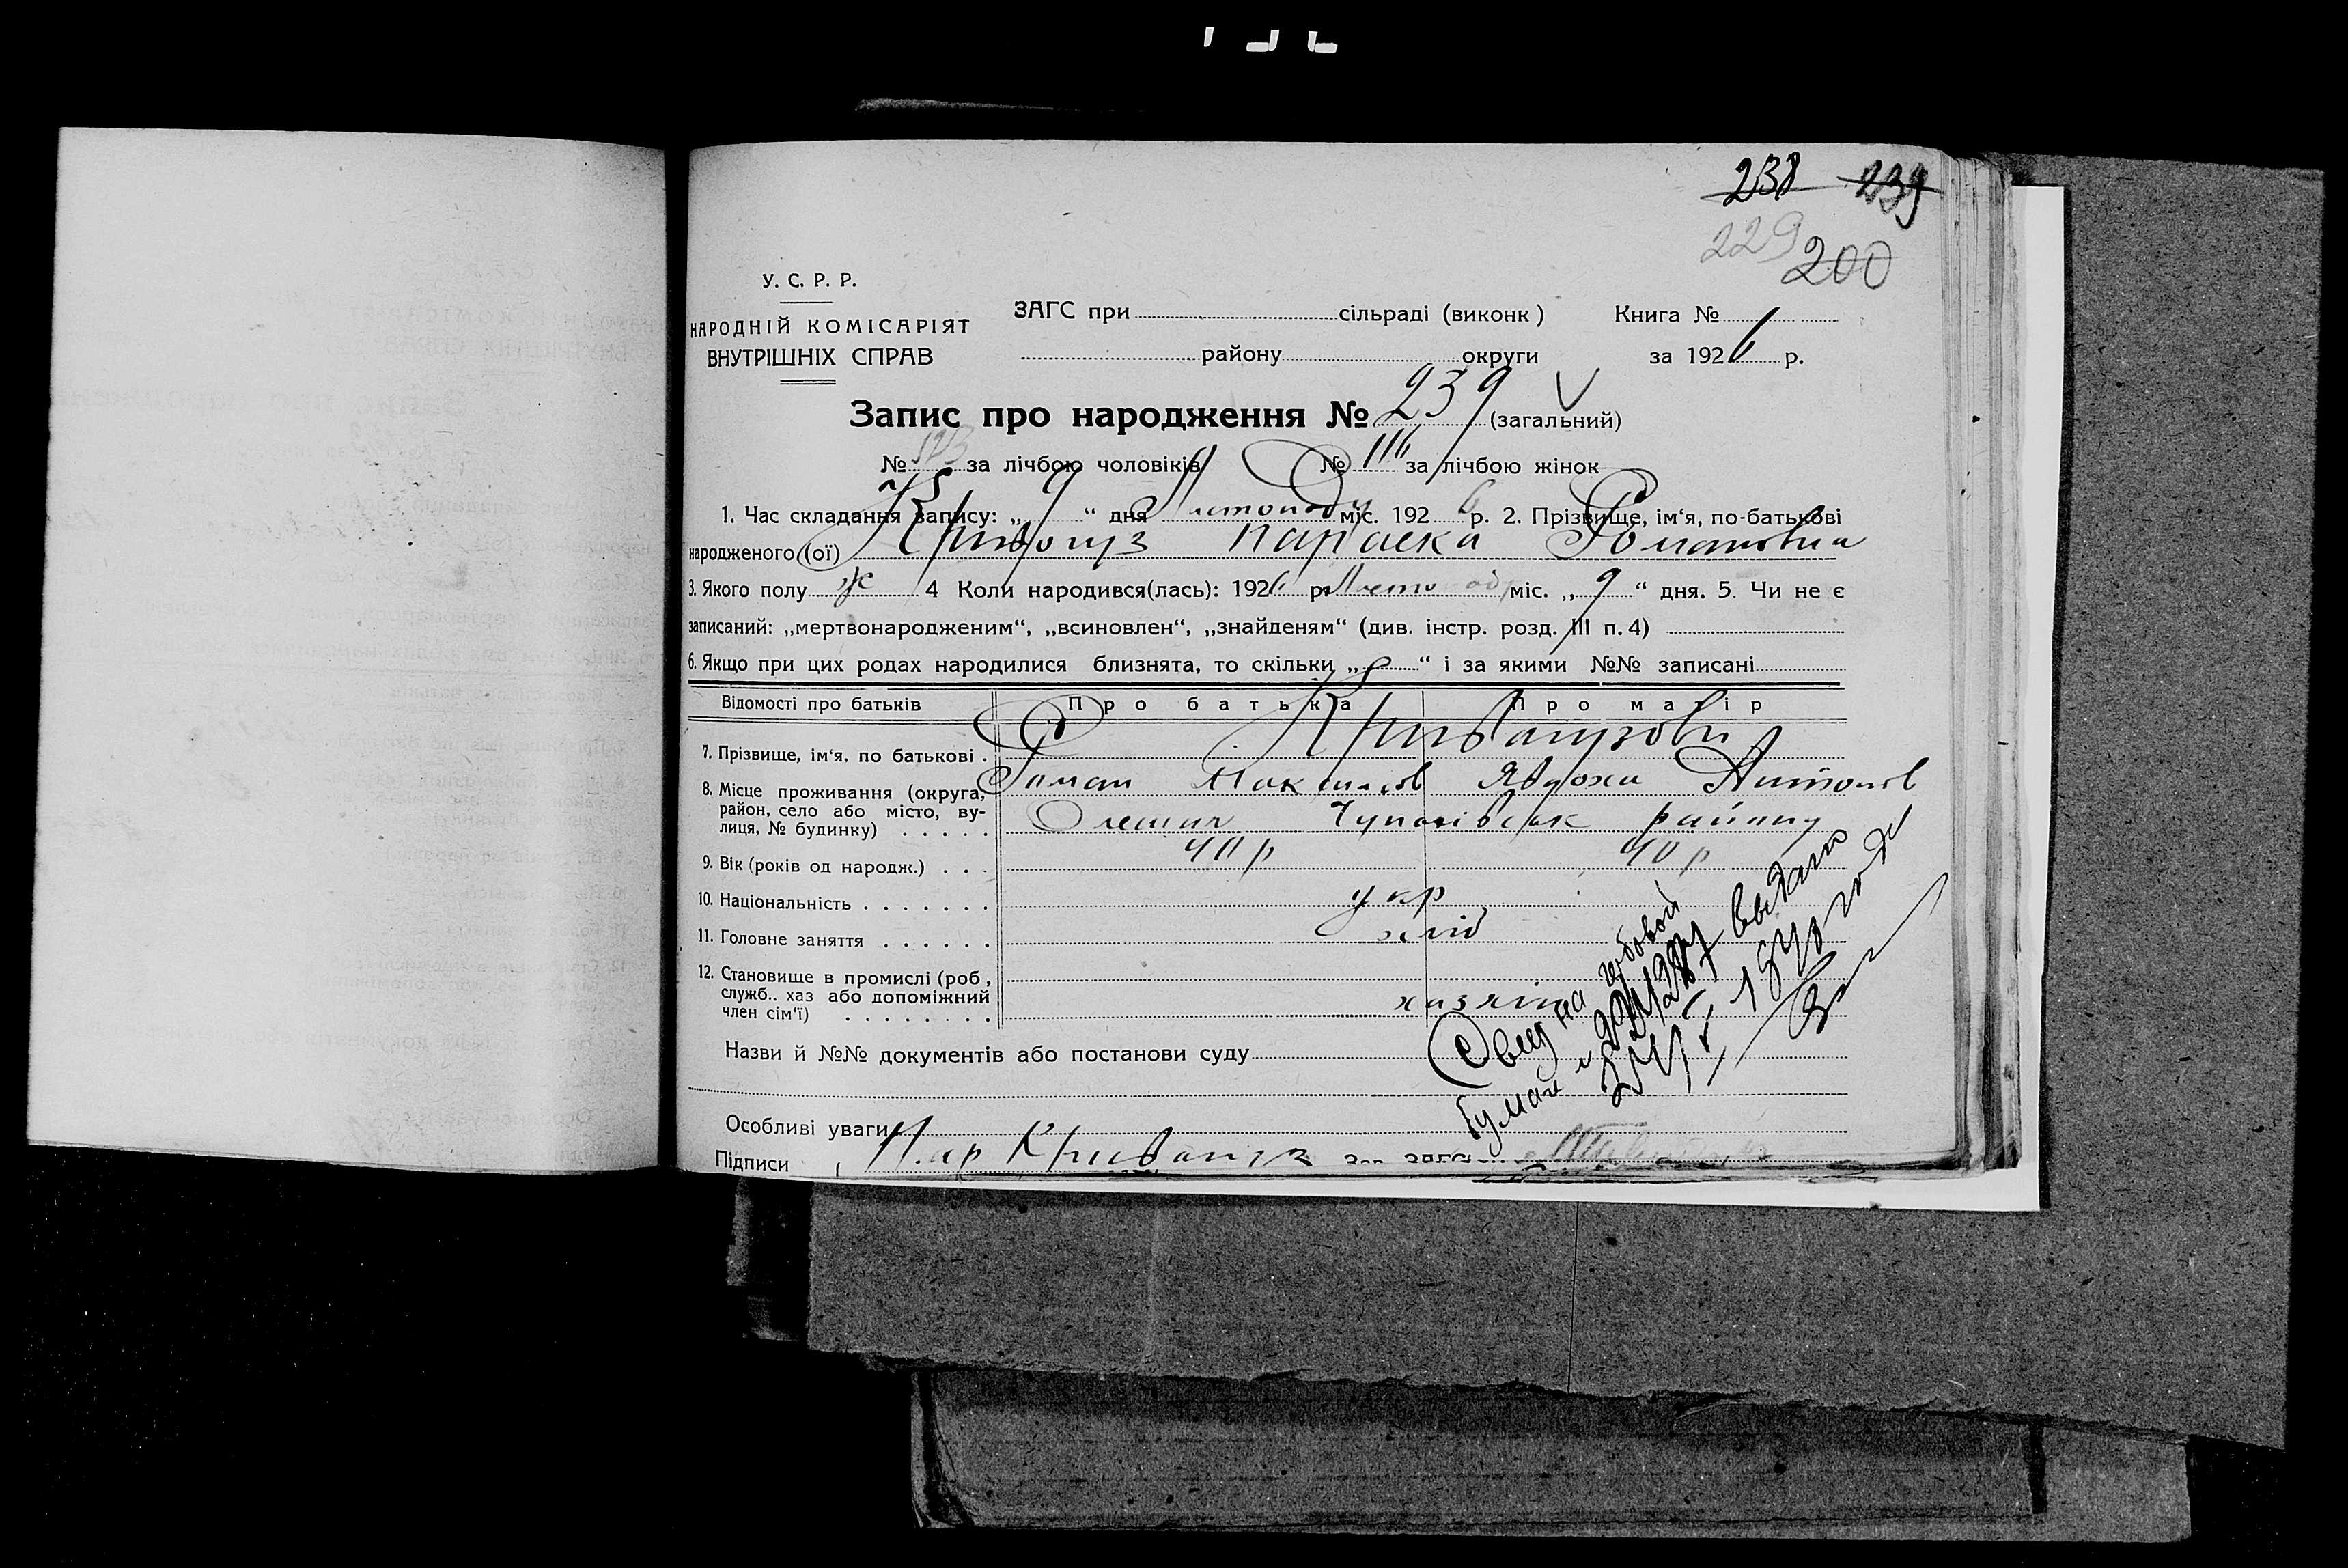 238 239
229 200
У. С. Р. Р.
НАРОДНІЙ КОМІСАРІЯТ
ВНУТРІШНІХ СПРАВ
ЗАГС при сільраді (виконк)
району округи
Книга № 1
за 1926 р.
Запис про народження № 239 (загальний)
№ за лічбою чоловіків № 111 за лічбою жінок
1. Час складання запису: „ 9 “ дня Листопаду міс. 1926 р. 2. Прізвище, ім‘я, по-батькові
народженого (ої) Параска Романовна
3. Якого полу ж 4 Коли народився(лась): 1926 р. міс. „ 9 “ дня. 5. Чи не є
записаний: „мертвонародженим“, „всиновлен“, „знайденям“ (див. інстр. розд. III п. 4)
6. Якщо при цих родах народилися близнята, то скільки „ “ і за якими №№ записані
Відомості про батьків Про батька Про матір
7. Прізвище, ім‘я. по батькові
Роман Максимов Явдоха Антонов
8. Місце проживання (округа, район, село або місто, вулиця, № будинку) району
9. Вік (років од народж.) 40 р 40 р
10. Національність укр
11. Головне заняття хліб
12. Становище в промислі (роб, служб.. хаз або допоміжний член сім‘ї) хазяін
Назви й №№ документів або постанови суду
Особливі уваги
Підписи Зав. ЗАГС
Свид на гербовой
бумаг выдано